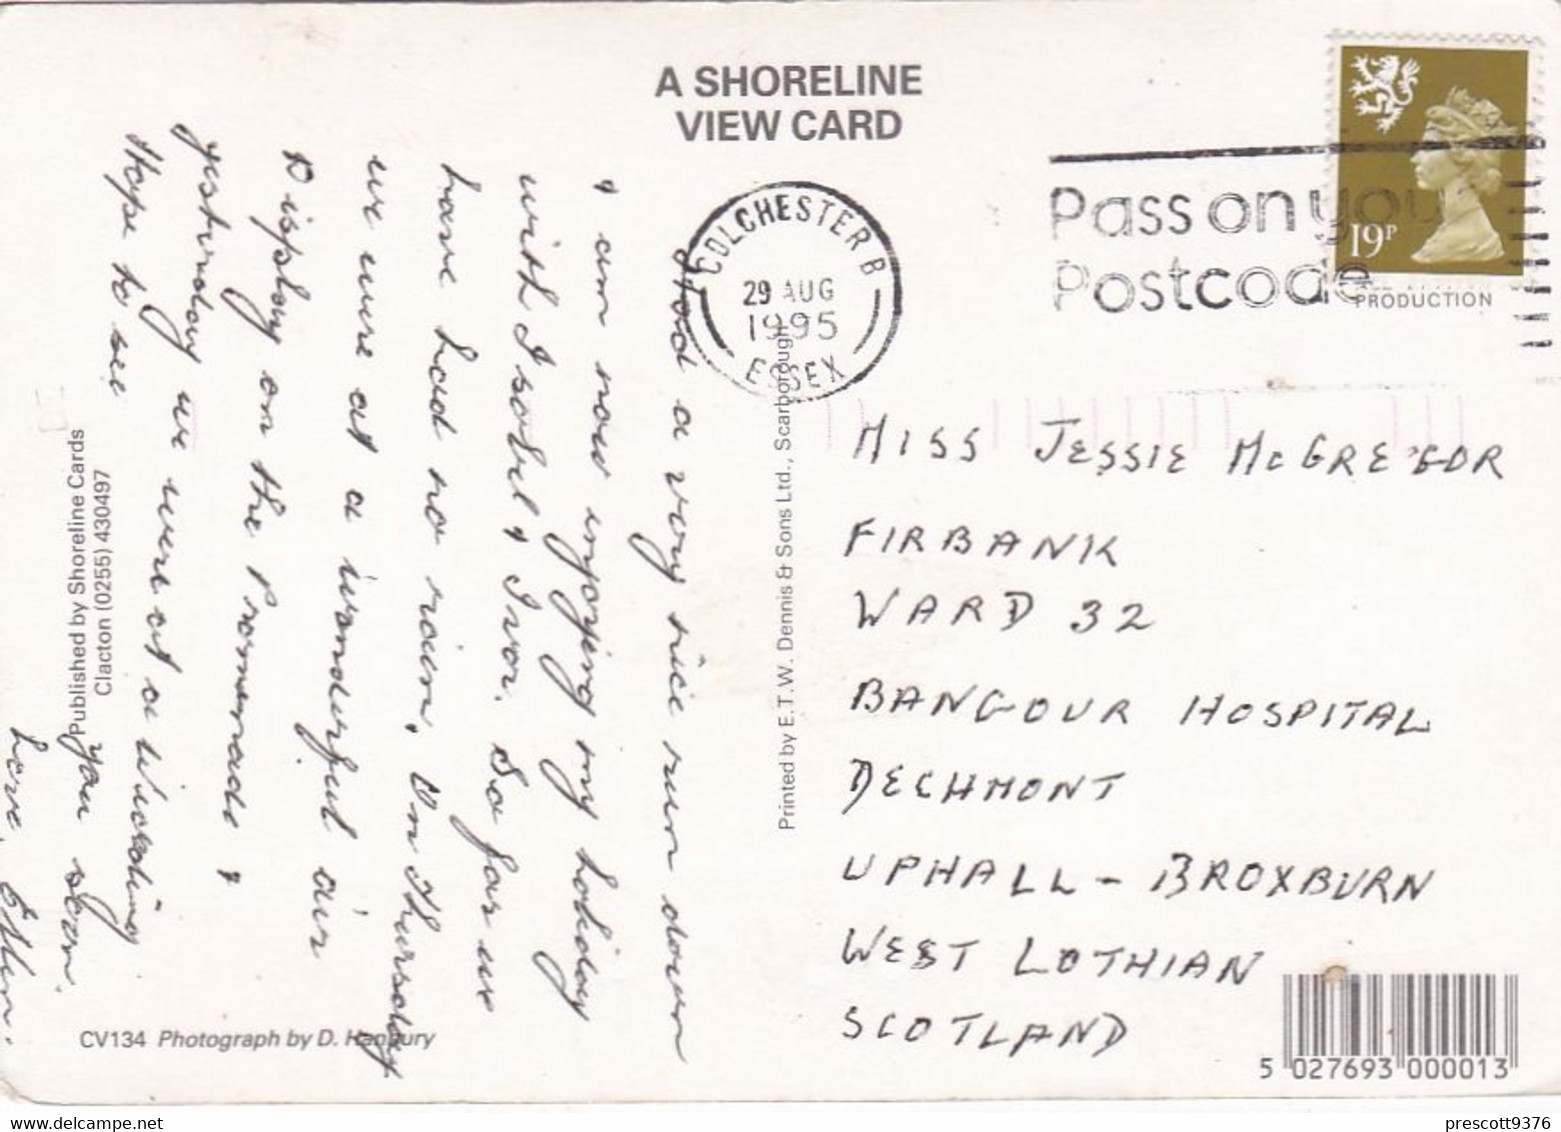 A SHORELINE
VIEW CARD
COLCHESTER B
29 AUG
1995
ESSEX
Pass on you
Postcode
19P
PRODUCTION
Had a very nice run down
& am now injoying my holiday
with Isobel & Ivor. So far we
have had no rain. On Thursday
we were at a wonderful air
Display on the Promonade &
yesturday we were at a Wedding
Hope to see you soon.
Love,
MISS JESSIE McGREGOR
FIRBANK
WARD 32
BANGOUR HOSPITAL
DECHMONT
UPHALL - BROXBURN
WEST LOTHIAN
SCOTLAND
Printed by E.T.W. Dennis & Sons Ltd., Scarborough
Published by Shoreline Cards
Clacton (0255) 430497
CV134 Photograph by D. Hanbury
5 027693 000013
prescott9376